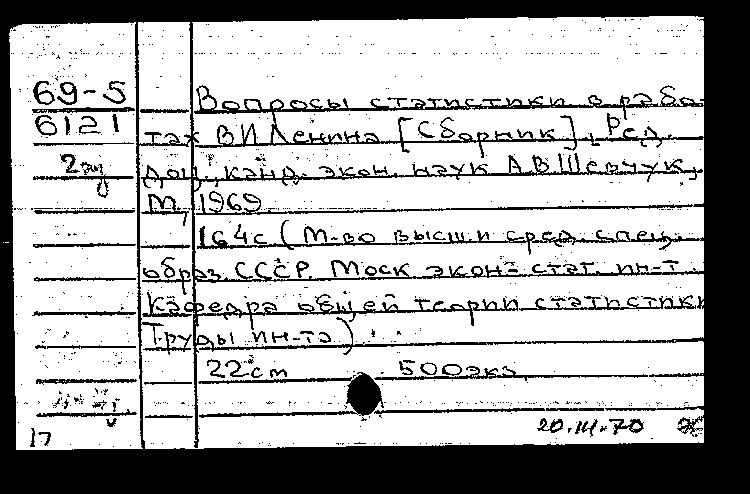 69-5 Вопросы статистики в рабо-
6121 тах В.И.Ленина [Сборник]. Ред.
2 доц., канд. экон. наук А.В.Шевчук,
М, 1969.
164с (М-во высш. и сред. спец.
образ. СССР. Моск экон-стат. ин-т.
Кафедра общей теории статистики
Труды ин-та)
22см 500экз
20.III.70
17